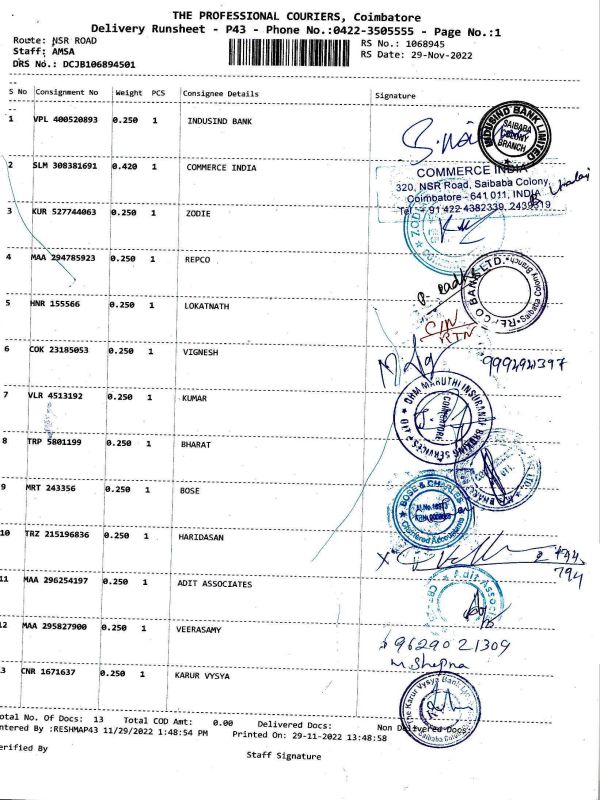 THE PROFESSIONAL COURIERS, Coimbatore
Delivery Runsheet - P43 - Phone No.:0422-3505555 - Page No.:1
Route: NSR ROAD RS No.: 1068945
Staff: AMSA RS Date: 29-Nov-2022
DRS No.: DCJB106894501
S No Consignment No Weight PCS Consignee Details Signature
1 VPL 400520893 0.250 1 INDUSIND BANK
INDUSIND BANK LIMITED
SAIBABA COLONY BRANCH
2 SLM 308381691 0.420 1 COMMERCE INDIA
COMMERCE INDIA
320, NSR Road, Saibaba Colony,
Coimbatore - 641 011, INDIA
Tel : + 91 422 4382339, 2439319
3 KUR 527744063 0.250 1 ZODIE
4 MAA 294785923 0.250 1 REPCO
REPCO BANK LTD. Saibaba Colony Branch
5 HNR 155566 0.250 1 LOKATNATH
6 COK 23185053 0.250 1 VIGNESH
7 VLR 4513192 0.250 1 KUMAR
OHM MARUTHI INSURANCE BROKING SERVICES
COIMBATORE
8 TRP 5801199 0.250 1 BHARAT
9 MRT 243356 0.250 1 BOSE
BOSE & CHARLES
Chartered Accountants
10 TRZ 215196836 0.250 1 HARIDASAN
794
11 MAA 296254197 0.250 1 ADIT ASSOCIATES
Adit Associates
12 MAA 295827900 0.250 1 VEERASAMY
9629021309
M. Shepna
3 CNR 1671637 0.250 1 KARUR VYSYA
The Karur Vysya Bank Ltd
Saibaba Colony
otal No. Of Docs: 13 Total COD Amt: 0.00 Delivered Docs: Non Delivered Docs:
ntered By :RESHMAP43 11/29/2022 1:48:54 PM Printed On: 29-11-2022 13:48:58
erified By Staff Signature